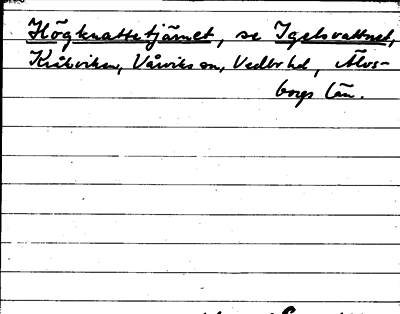 Högknattetjärnet, se Igelsvattnet,
Kråkviken, Vårviks sn, Vedbo hd, Älvs-
borgs län.